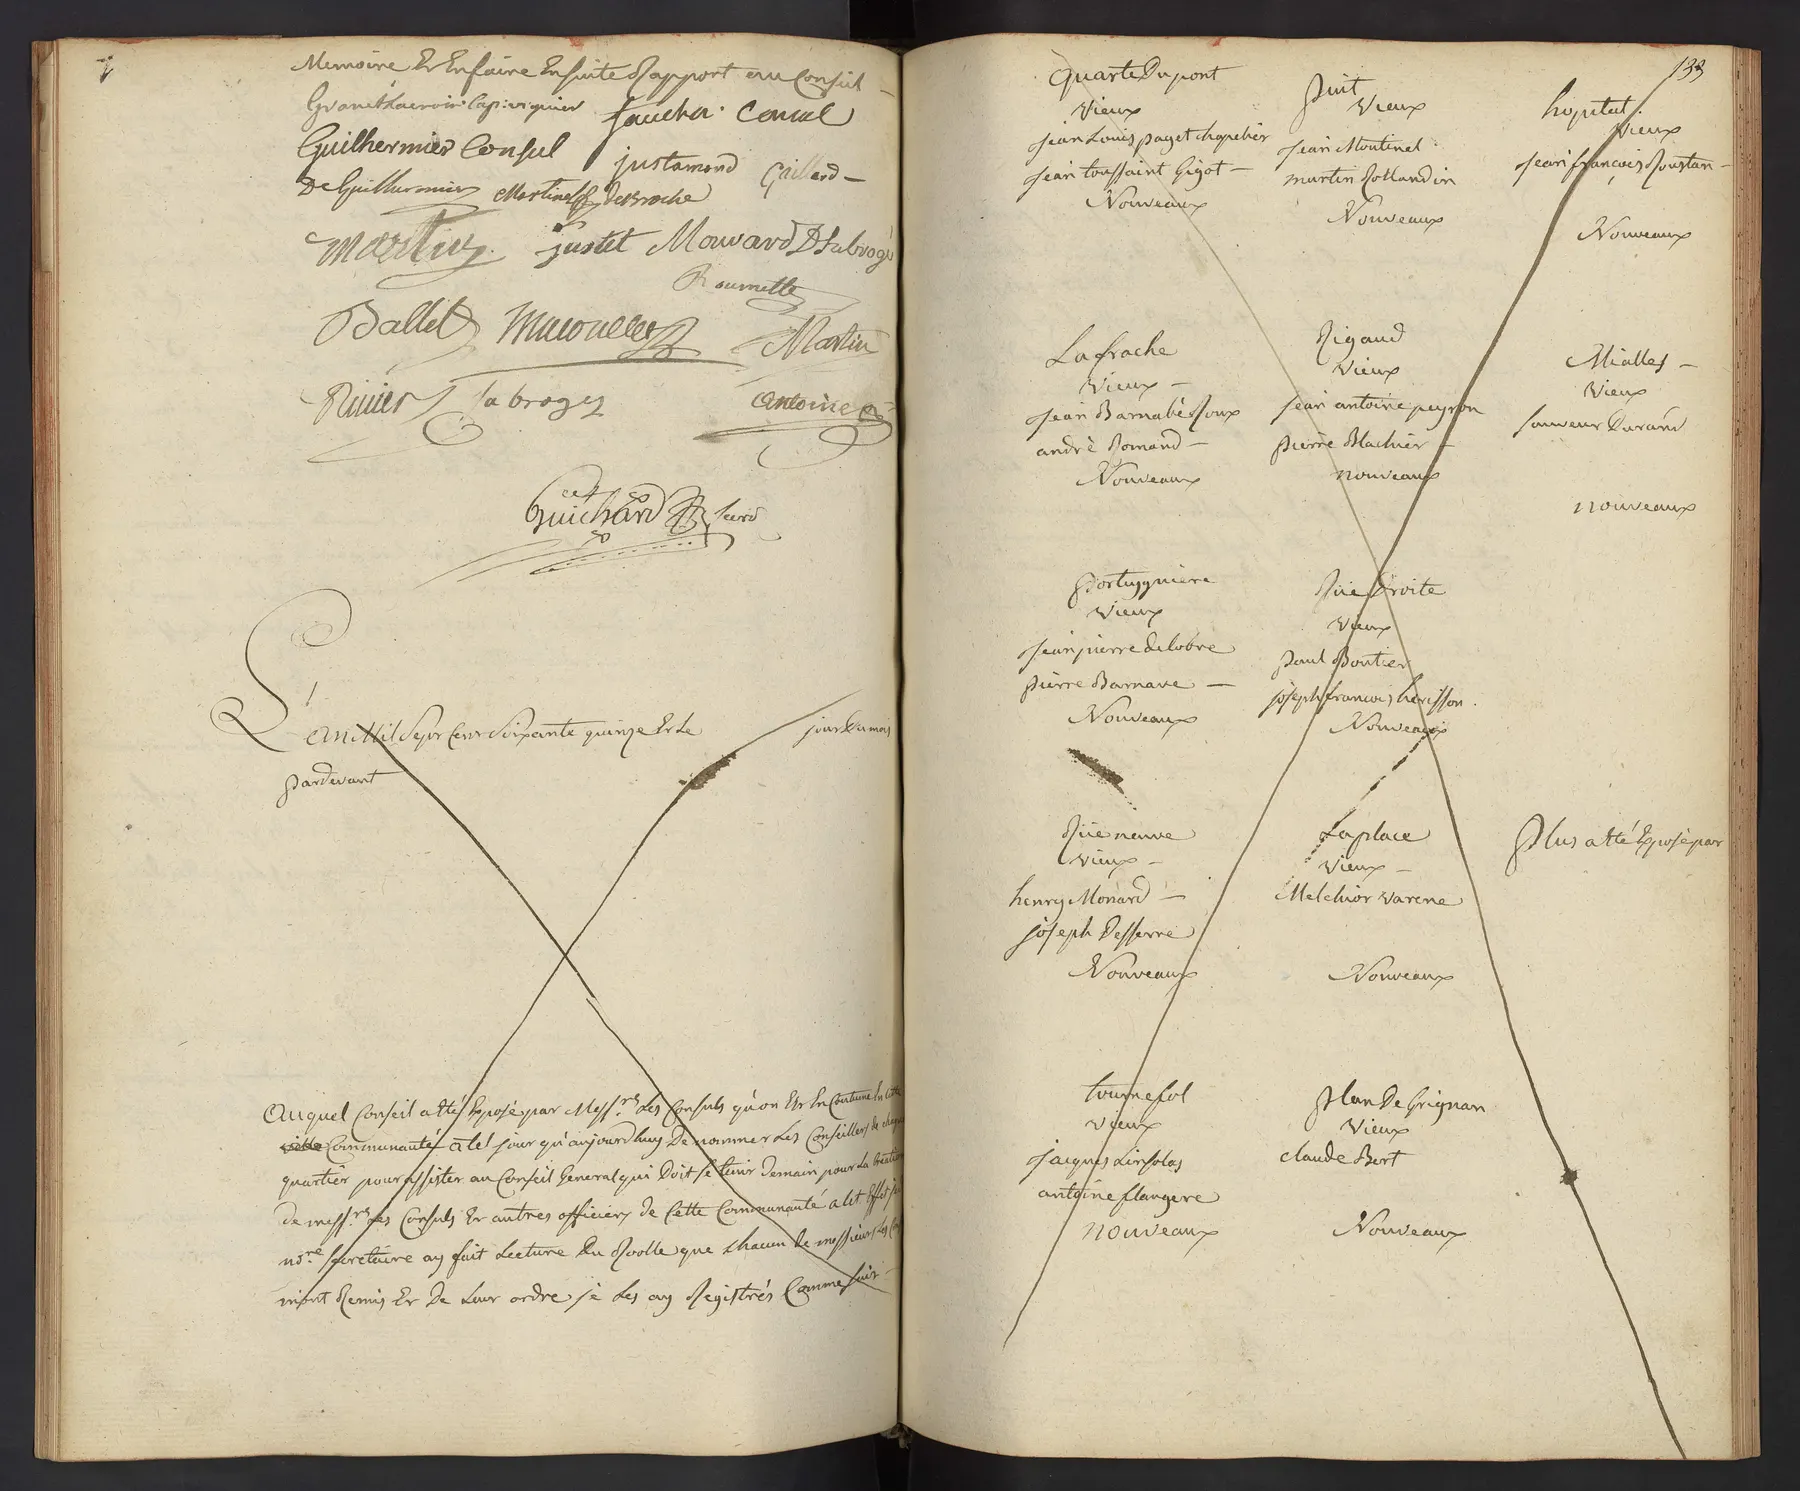 Memoire Et En faire Ensuite Rapport au Conseil
Granet Lacroix Cap: viguier faucher Consul
Guilhermier Consul justamond Gaillard
De Guilhermier Martinel Desroche
Martin justet Mouvard D Labroge
Roumette
Ballet Martin
Rivier Labroge antoine
Guichard secre
L'an Mil Sept Cent Soixante quinze Et Le jour Du mois
Pardevant
Auquel Conseil a Eté Exposé par Messrs Les Consuls qu'on Est En Coutume En Cette
ville Communauté a tel jour qu'aujourdhuy De nommer Les Conseillers de chaque
quartier pour assister au Conseil General qui Doit se tenir Demain pour La Création
de messrs Les Consuls Et autres officiers de Cette Communauté a Cet Effet je
nore secretaire ay fait Lecture Du Roolle que Chacun De messieurs Les Con
m'ont Remis Et De Leur ordre je Les ay Registrés Comme suit
133
quarte Du pont
vieux
jean Louis paget chapelier
jean toussaint Gigot
Nouveaux
Puit
vieux
jean Moutinel
martin Rollandin
Nouveaux
hopital
vieux
jean françois Roustan
Nouveaux
La frache
vieux
jean Barnabé Roux
andré Romand
Nouveaux
Rigaud
vieux
jean antoine peyron
pierre Blachier
nouveaux
Mialles
vieux
sauveur Durand
nouveaux
Portugniere
vieux
jean pierre delobre
pierre Barnave
Nouveaux
Rüe Droite
vieux
paul Boutier
joseph francois herisson
Nouveaux
Rüe neuve
vieux
henry Monard
joseph Desserre
Nouveaux
La place
vieux
Melchior varene
Nouveaux
Plus a Eté Exposé par
tournefol
vieux
jacques Linsolas
antoine flaugere
nouveaux
Plan De Grignan
vieux
claude Bert
Nouveaux